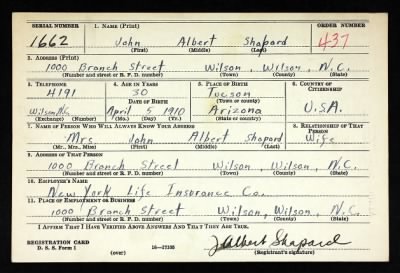 SERIAL NUMBER 1. NAME (Print) ORDER NUMBER
1662 John Albert Shapard 437
(First) (Middle) (Last)
2. ADDRESS (Print)
1000 Branch Street Wilson, Wilson, N.C.
(Number and street or R. F. D. number) (Town) (County) (State)
3. TELEPHONE 4. AGE IN YEARS 5. PLACE OF BIRTH 6. COUNTRY OF CITIZENSHIP
4191 30 Tucson
DATE OF BIRTH (Town or county)
Wilson, N.C. April 5 1910 Arizona U.S.A.
(Exchange) (Number) (Mo.) (Day) (Yr.) (State or country)
7. NAME OF PERSON WHO WILL ALWAYS KNOW YOUR ADDRESS 8. RELATIONSHIP OF THAT PERSON
Mrs John Albert Shapard Wife
(Mr., Mrs., Miss) (First) (Middle) (Last)
9. ADDRESS OF THAT PERSON
1000 Branch Street Wilson, Wilson, N.C.
(Number and street or R. F. D. number) (Town) (County) (State)
10. EMPLOYER'S NAME
New York Life Insurance Co.
11. PLACE OF EMPLOYMENT OR BUSINESS
1000 Branch Street Wilson, Wilson, N.C.
(Number and street or R. F. D. number) (Town) (County) (State)
I AFFIRM THAT I HAVE VERIFIED ABOVE ANSWERS AND THAT THEY ARE TRUE.
REGISTRATION CARD
D. S. S. Form 1 (over) 16—17105
J Albert Shapard
(Registrant's signature)